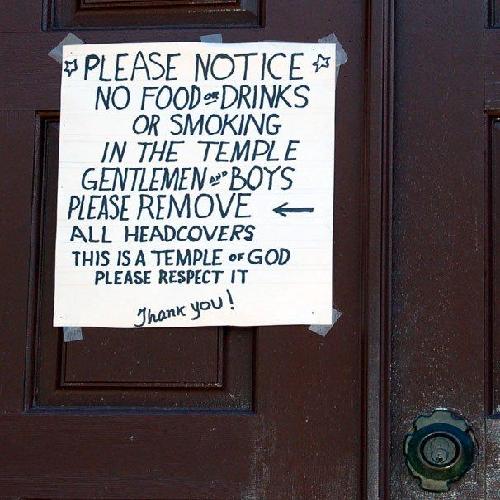 PLEASE NOTICE
NO FOOD OR DRINKS
OR SMOKING
IN THE TEMPLE
GENTLEMEN AND BOYS
PLEASE REMOVE
ALL HEADCOVERS
THIS IS A TEMPLE OF GOD
PLEASE RESPECT IT
Thank you!